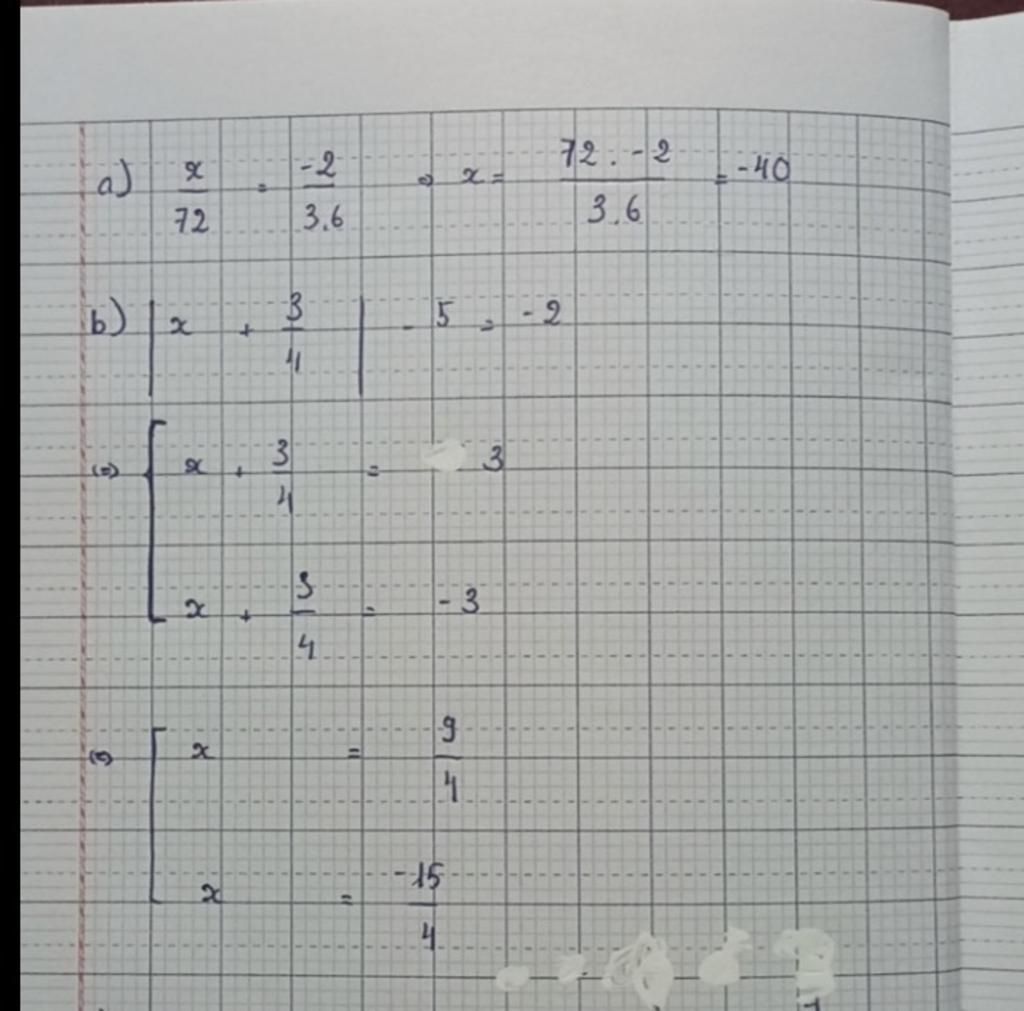 a) x/72 = -2/3.6 => x = 72 . -2/3.6 = -40
b) |x + 3/4| - 5 = -2
(=) [ x + 3/4 = 3
x + 3/4 = -3
(=) [ x = 9/4
x = -15/4